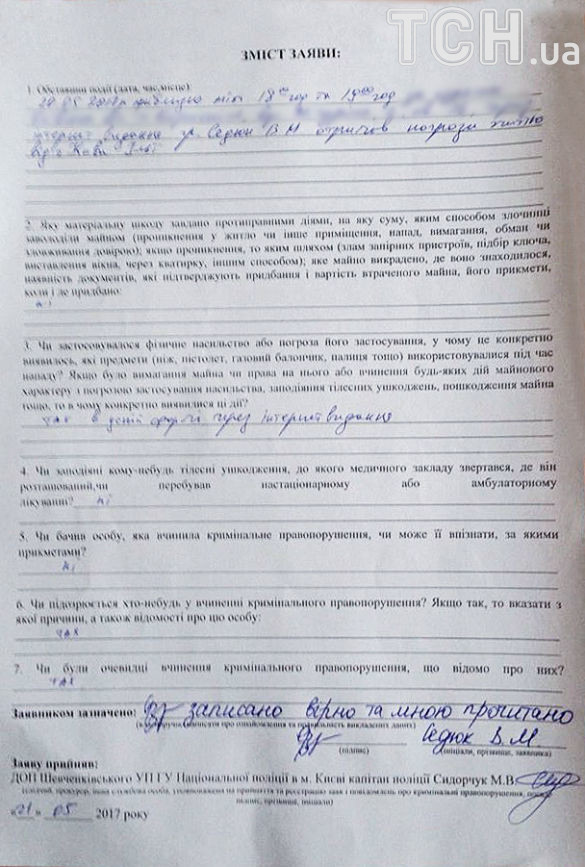 ТСН.ua
ЗМІСТ ЗАЯВИ:
1. Обставини події (дата, час, місце)
2017р приблизно між 18 00 год та 19 00 год
інтернет видання гр. Седюк В М отримав погрози
від
2. Яку матеріальну шкоду завдано протиправними діями, на яку суму, яким способом злочинці
заволоділи майном (проникнення у житло чи інше приміщення, напад, вимагання, обман чи
зловживання довірою); якщо проникнення, то яким шляхом (злам запірних пристроїв, підбір ключа,
виставлення вікна, через кватирку, іншим способом); яке майно викрадено, де воно знаходилося,
наявність документів, які підтверджують придбання і вартість втраченого майна, його прикмети,
коли і де придбано:
ні
3. Чи застосовувалося фізичне насильство або погроза його застосування, у чому це конкретно
виявилось, які предмети (ніж, пістолет, газовий балончик, палиця тощо) використовувалися під час
нападу? Якщо було вимагання майна чи права на нього або вчинення будь-яких дій майнового
характеру з погрозою застосування насильства, заподіяння тілесних ушкоджень, пошкодження майна
тощо, то в чому конкретно виявилися ці дії?
так в формі через інтернет видання
4. Чи заподіяні кому-небудь тілесні ушкодження, до якого медичного закладу звертався, де він
розташований,чи перебував настаціонарному або амбулаторному
лікуванні? ні
5. Чи бачив особу, яка вчинила кримінальне правопорушення, чи може її впізнати, за якими
прикметами?
ні
6. Чи підозрюється хто-небудь у вчиненні кримінального правопорушення? Якщо так, то вказати з
якої причини, а також відомості про цю особу:
так
7. Чи були очевидці вчинення кримінального правопорушення, що відомо про них?
так
Заявником зазначено: записано вірно та мною прочитано
Седюк В.М.
(підпис) (ініціали, прізвище, заявника)
Заяву прийняв:
ДОП Шевченківського УП ГУ Національної поліції в м. Києві капітан поліції Сидорчук М.В.
(слідчий, прокурор, інша службова особа, уповноважена на прийняття та реєстрацію заяв і повідомлень про кримінальні правопорушення, посада,
підпис, прізвище, ініціали)
«21» 05 2017 року